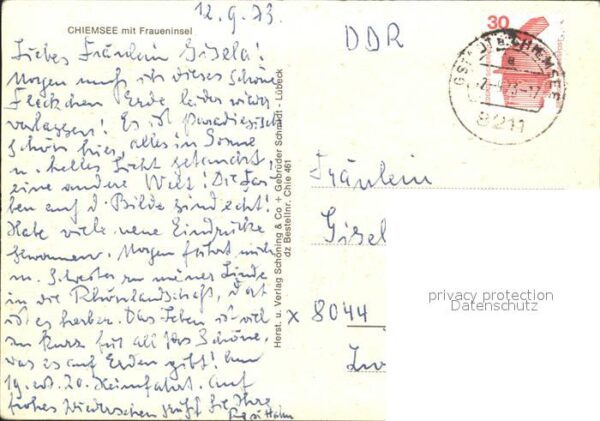 12.9.73
CHIEMSEE mit Fraueninsel
Liebes Fräulein Gisela!
Morgen muß ich dieses schöne
Fleckchen Erde leider wieder
verlassen! Es ist paradiesisch
schön hier, alles in Sonne
u. helles Licht getaucht,
eine andere Welt! Die Far-
ben auf d. Bilde sind echt!
Habe viele neue Eindrücke
gewonnen. Morgen fährt mich
m. Schwester zu meiner Linde
in die Rhönlandschaft, dort
ist es herber. Das Leben ist viel
zu kurz für all das Schöne,
was es auf Erden gibt! Am
19. od. 20. Heimfahrt. Auf
frohes Wiedersehen grüßt Sie Ihre
Hahn
Herst. u. Verlag Schöning & Co + Gebrüder Schmidt - Lübeck
dz Bestellnr. Chie 461
DDR
30
GSTADT A. CHIEMSEE
a
8211
Fräulein
Gisel
x 8044
privacy protection
Datenschutz